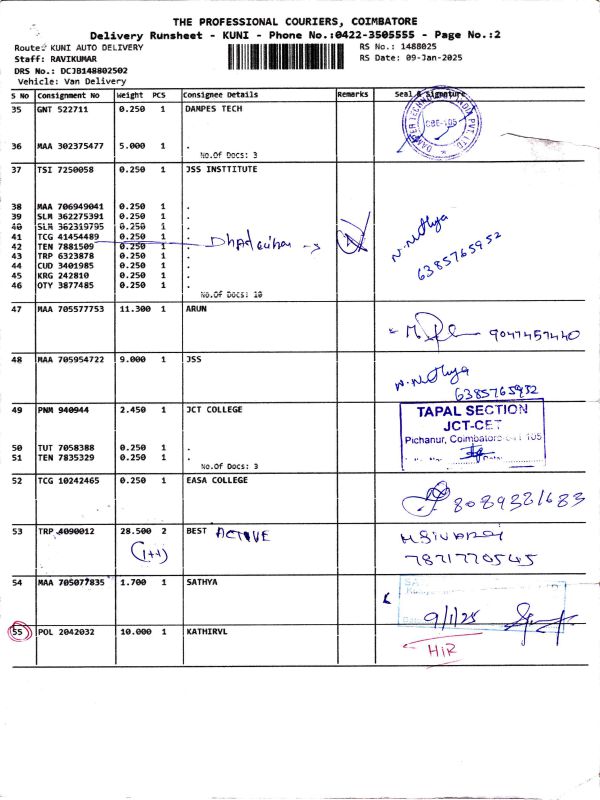 THE PROFESSIONAL COURIERS, COIMBATORE
Delivery Runsheet - KUNI - Phone No.:0422-3505555 - Page No.:2
Route: KUNI AUTO DELIVERY
RS No.: 1488025
Staff: RAVIKUMAR
RS Date: 09-Jan-2025
DRS No.: DCJB148802502
Vehicle: Van Delivery
S No Consignment No Weight PCS Consignee Details Remarks Seal & Signature
35 GNT 522711 0.250 1 DANPES TECH
CBE-105
36 MAA 302375477 5.000 1 .
No.Of Docs: 3
37 TSI 7250058 0.250 1 JSS INSTTITUTE
38 MAA 706949041 0.250 1 .
39 SLM 362275391 0.250 1 .
40 SLM 362319795 0.250 1 .
41 TCG 41454489 0.250 1 .
42 TEN 7881509 0.250 1 .
43 TRP 6323878 0.250 1 .
44 CUD 3401985 0.250 1 .
45 KRG 242810 0.250 1 .
46 OTY 3877485 0.250 1 .
No.Of Docs: 10
N. Nithya
6385765952
47 MAA 705577753 11.300 1 ARUN
9047457440
48 MAA 705954722 9.000 1 JSS
N. Nithya
6385765952
49 PNM 940944 2.450 1 JCT COLLEGE
TAPAL SECTION
JCT-CET
Pichanur, Coimbatore-641 105
50 TUT 7058388 0.250 1 .
51 TEN 7835329 0.250 1 .
No.Of Docs: 3
52 TCG 10242465 0.250 1 EASA COLLEGE
8089321683
53 TRP 4090012 28.500 2 BEST ACTIVE
(1+1)
7871770545
54 MAA 705077835 1.700 1 SATHYA
9/1/25
55 POL 2042032 10.000 1 KATHIRVL
HIR